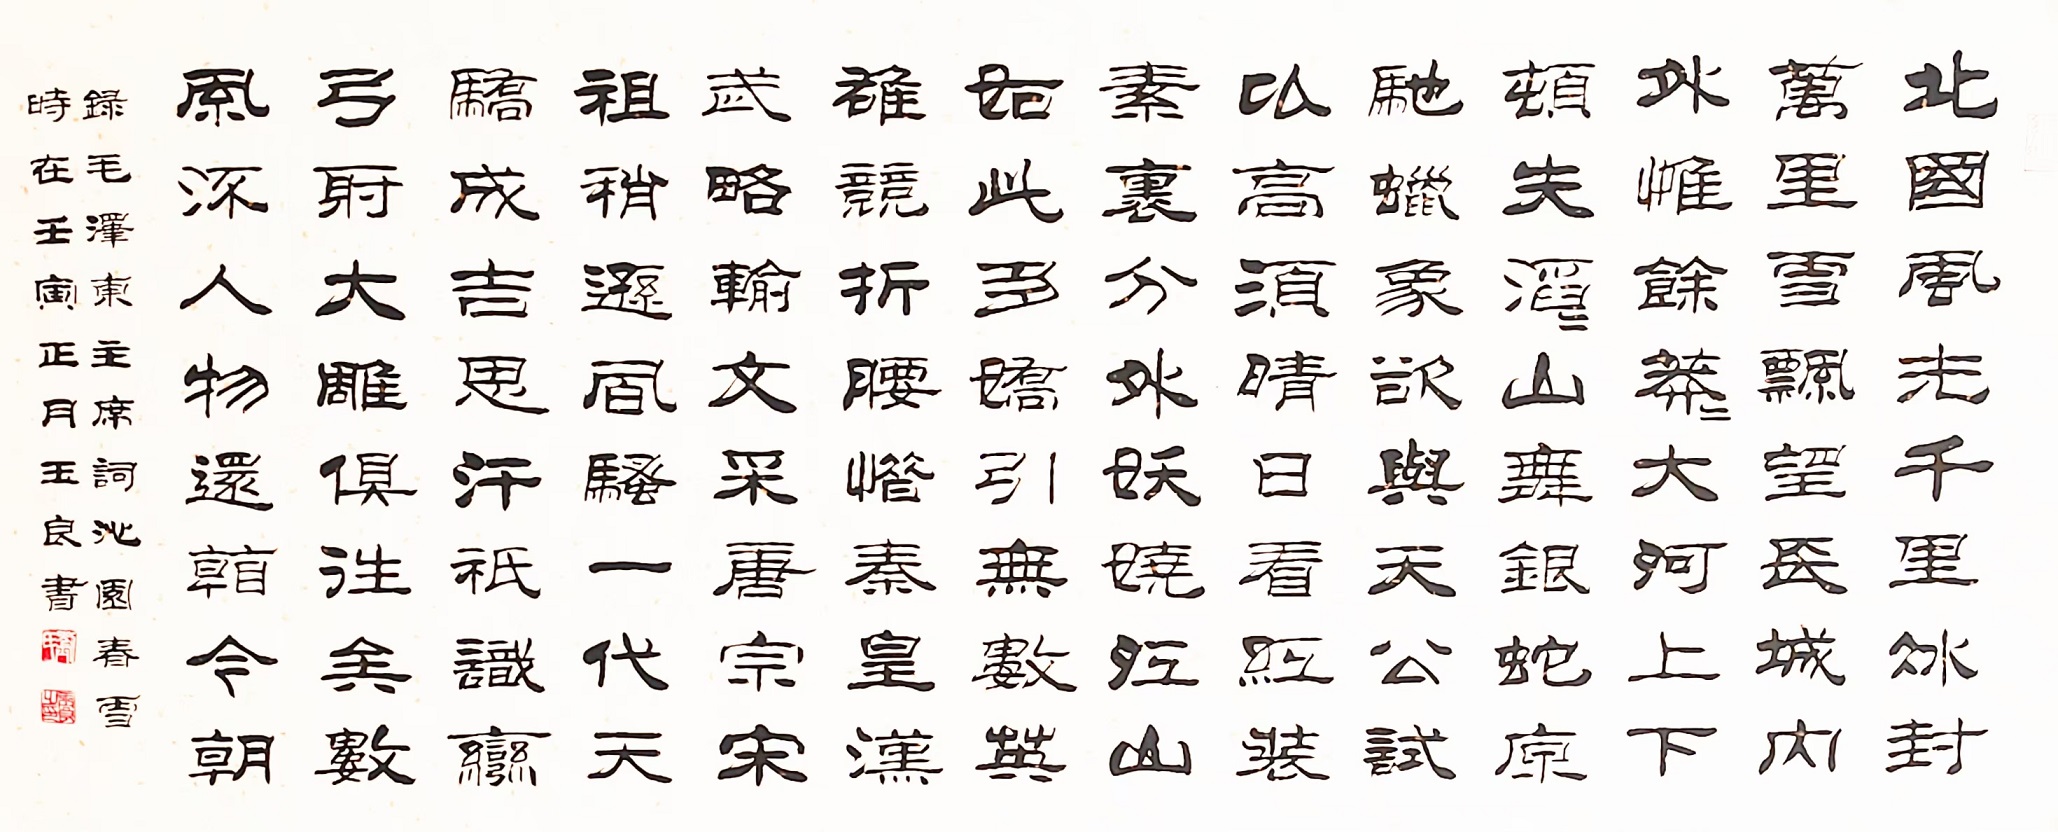 北國風光千里冰封
萬里雪飄望長城內
外惟餘莽〻大河上下
頓失滔〻山舞銀蛇原
馳蠟象欲與天公試
以高須晴日看紅裝
素裹分外妖嬈江山
如此多嬌引無數英
雄競折腰惜秦皇漢
武略輸文采唐宗宋
祖稍遜風騷一代天
驕成吉思汗祇識彎
弓射大雕俱往矣數
風流人物還朝今朝
錄毛澤東主席詞沁園春雪
時在壬寅正月玉良書